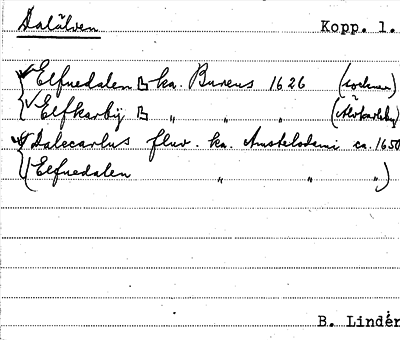 Dalälven Kopp. l.
Elfuedalen B ka. Bureus 1626 (socknen)
Elfkarby B " " " (Älvkarleby)
Dalecarlus fluv. ka. Amstelodami ca. 1650
(Elfuedalen " " ")
B. Lindén